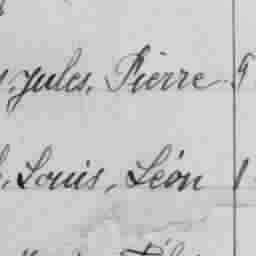 Jules, Pierre 9
Louis, Léon 1